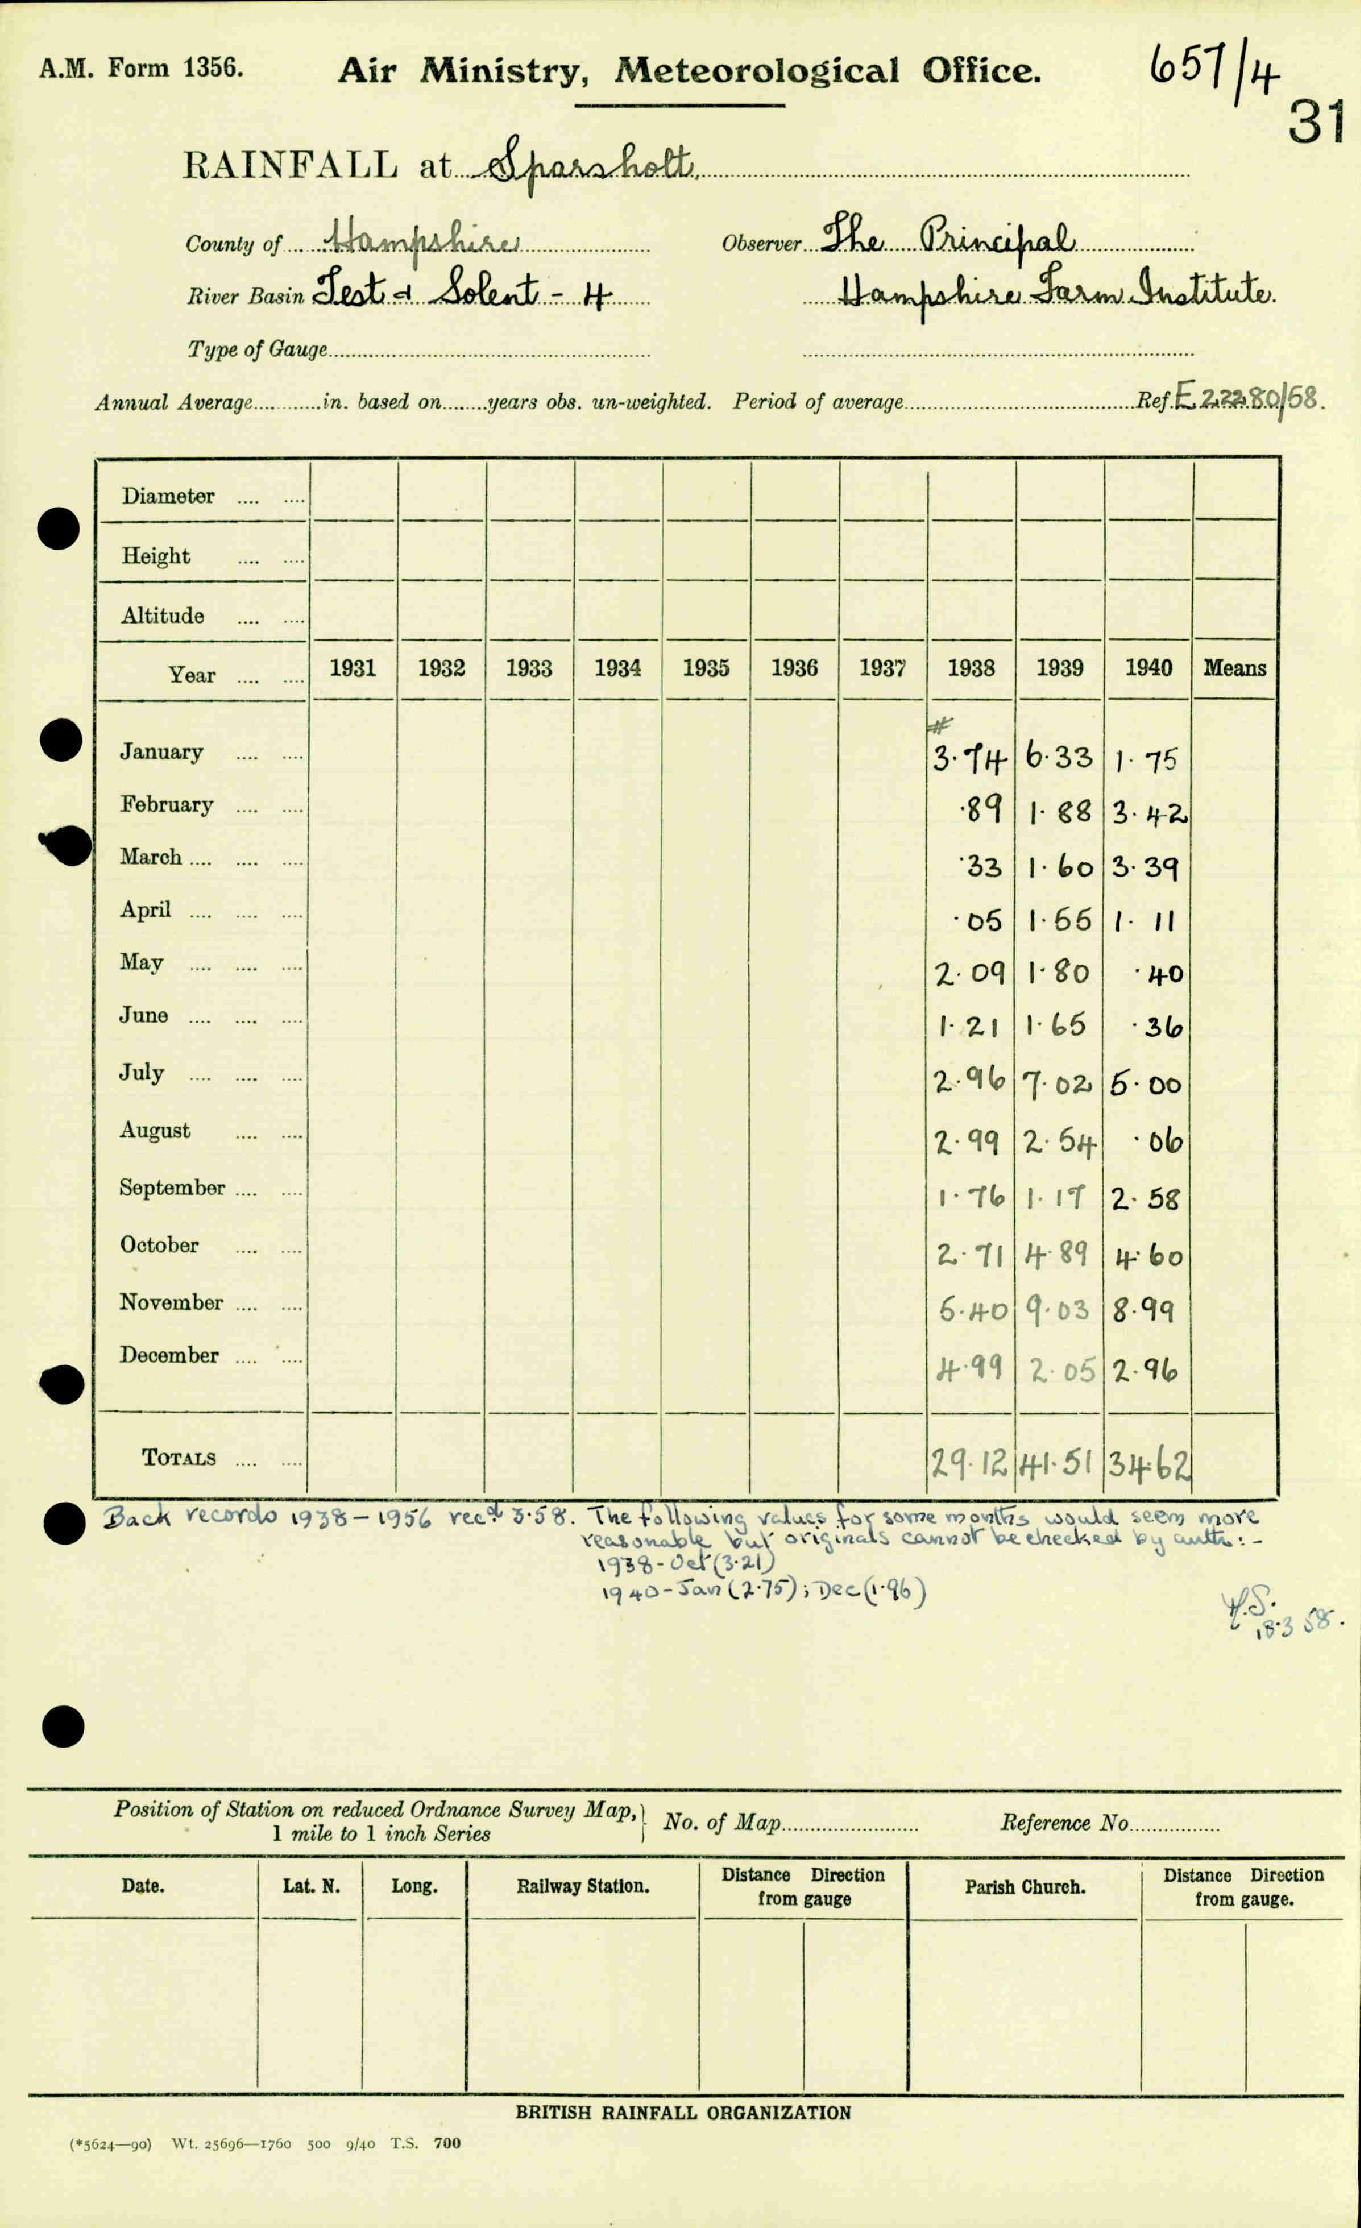 A.M. Form 1356. Air Ministry, Meteorological Office. 657/4
31
RAINFALL at Sparsholt.
County of Hampshire Observer The Principal
River Basin Test & Solent - 4 Hampshire Farm Institute.
Type of Gauge
Annual Average in. based on years obs. un-weighted. Period of average Ref. E 22280/58.
Diameter
Height
Altitude
Year 1931 1932 1933 1934 1935 1936 1937 1938 1939 1940 Means
#
January 3.74 6.33 1.75
February .89 1.88 3.42
March .33 1.60 3.39
April .05 1.55 1.11
May 2.09 1.80 .40
June 1.21 1.65 .36
July 2.96 7.02 5.00
August 2.99 2.54 .06
September 1.76 1.17 2.58
October 2.71 4.89 4.60
November 5.40 9.03 8.99
December 4.99 2.05 2.96
TOTALS 29.12 41.51 34.62
Back records 1938 - 1956 recd 3.58. The following values for some months would seem more
reasonable but originals cannot be checked by auth: -
1938 - Oct (3.21)
1940 - Jan (2.75); Dec (1.96)
H.S.
18.3 58.
Position of Station on reduced Ordnance Survey Map, No. of Map Reference No.
1 mile to 1 inch Series
Date. Lat. N. Long. Railway Station. Distance Direction from gauge Parish Church. Distance Direction from gauge.
BRITISH RAINFALL ORGANIZATION
(*5624—90) Wt. 25696—1760 500 9/40 T.S. 700